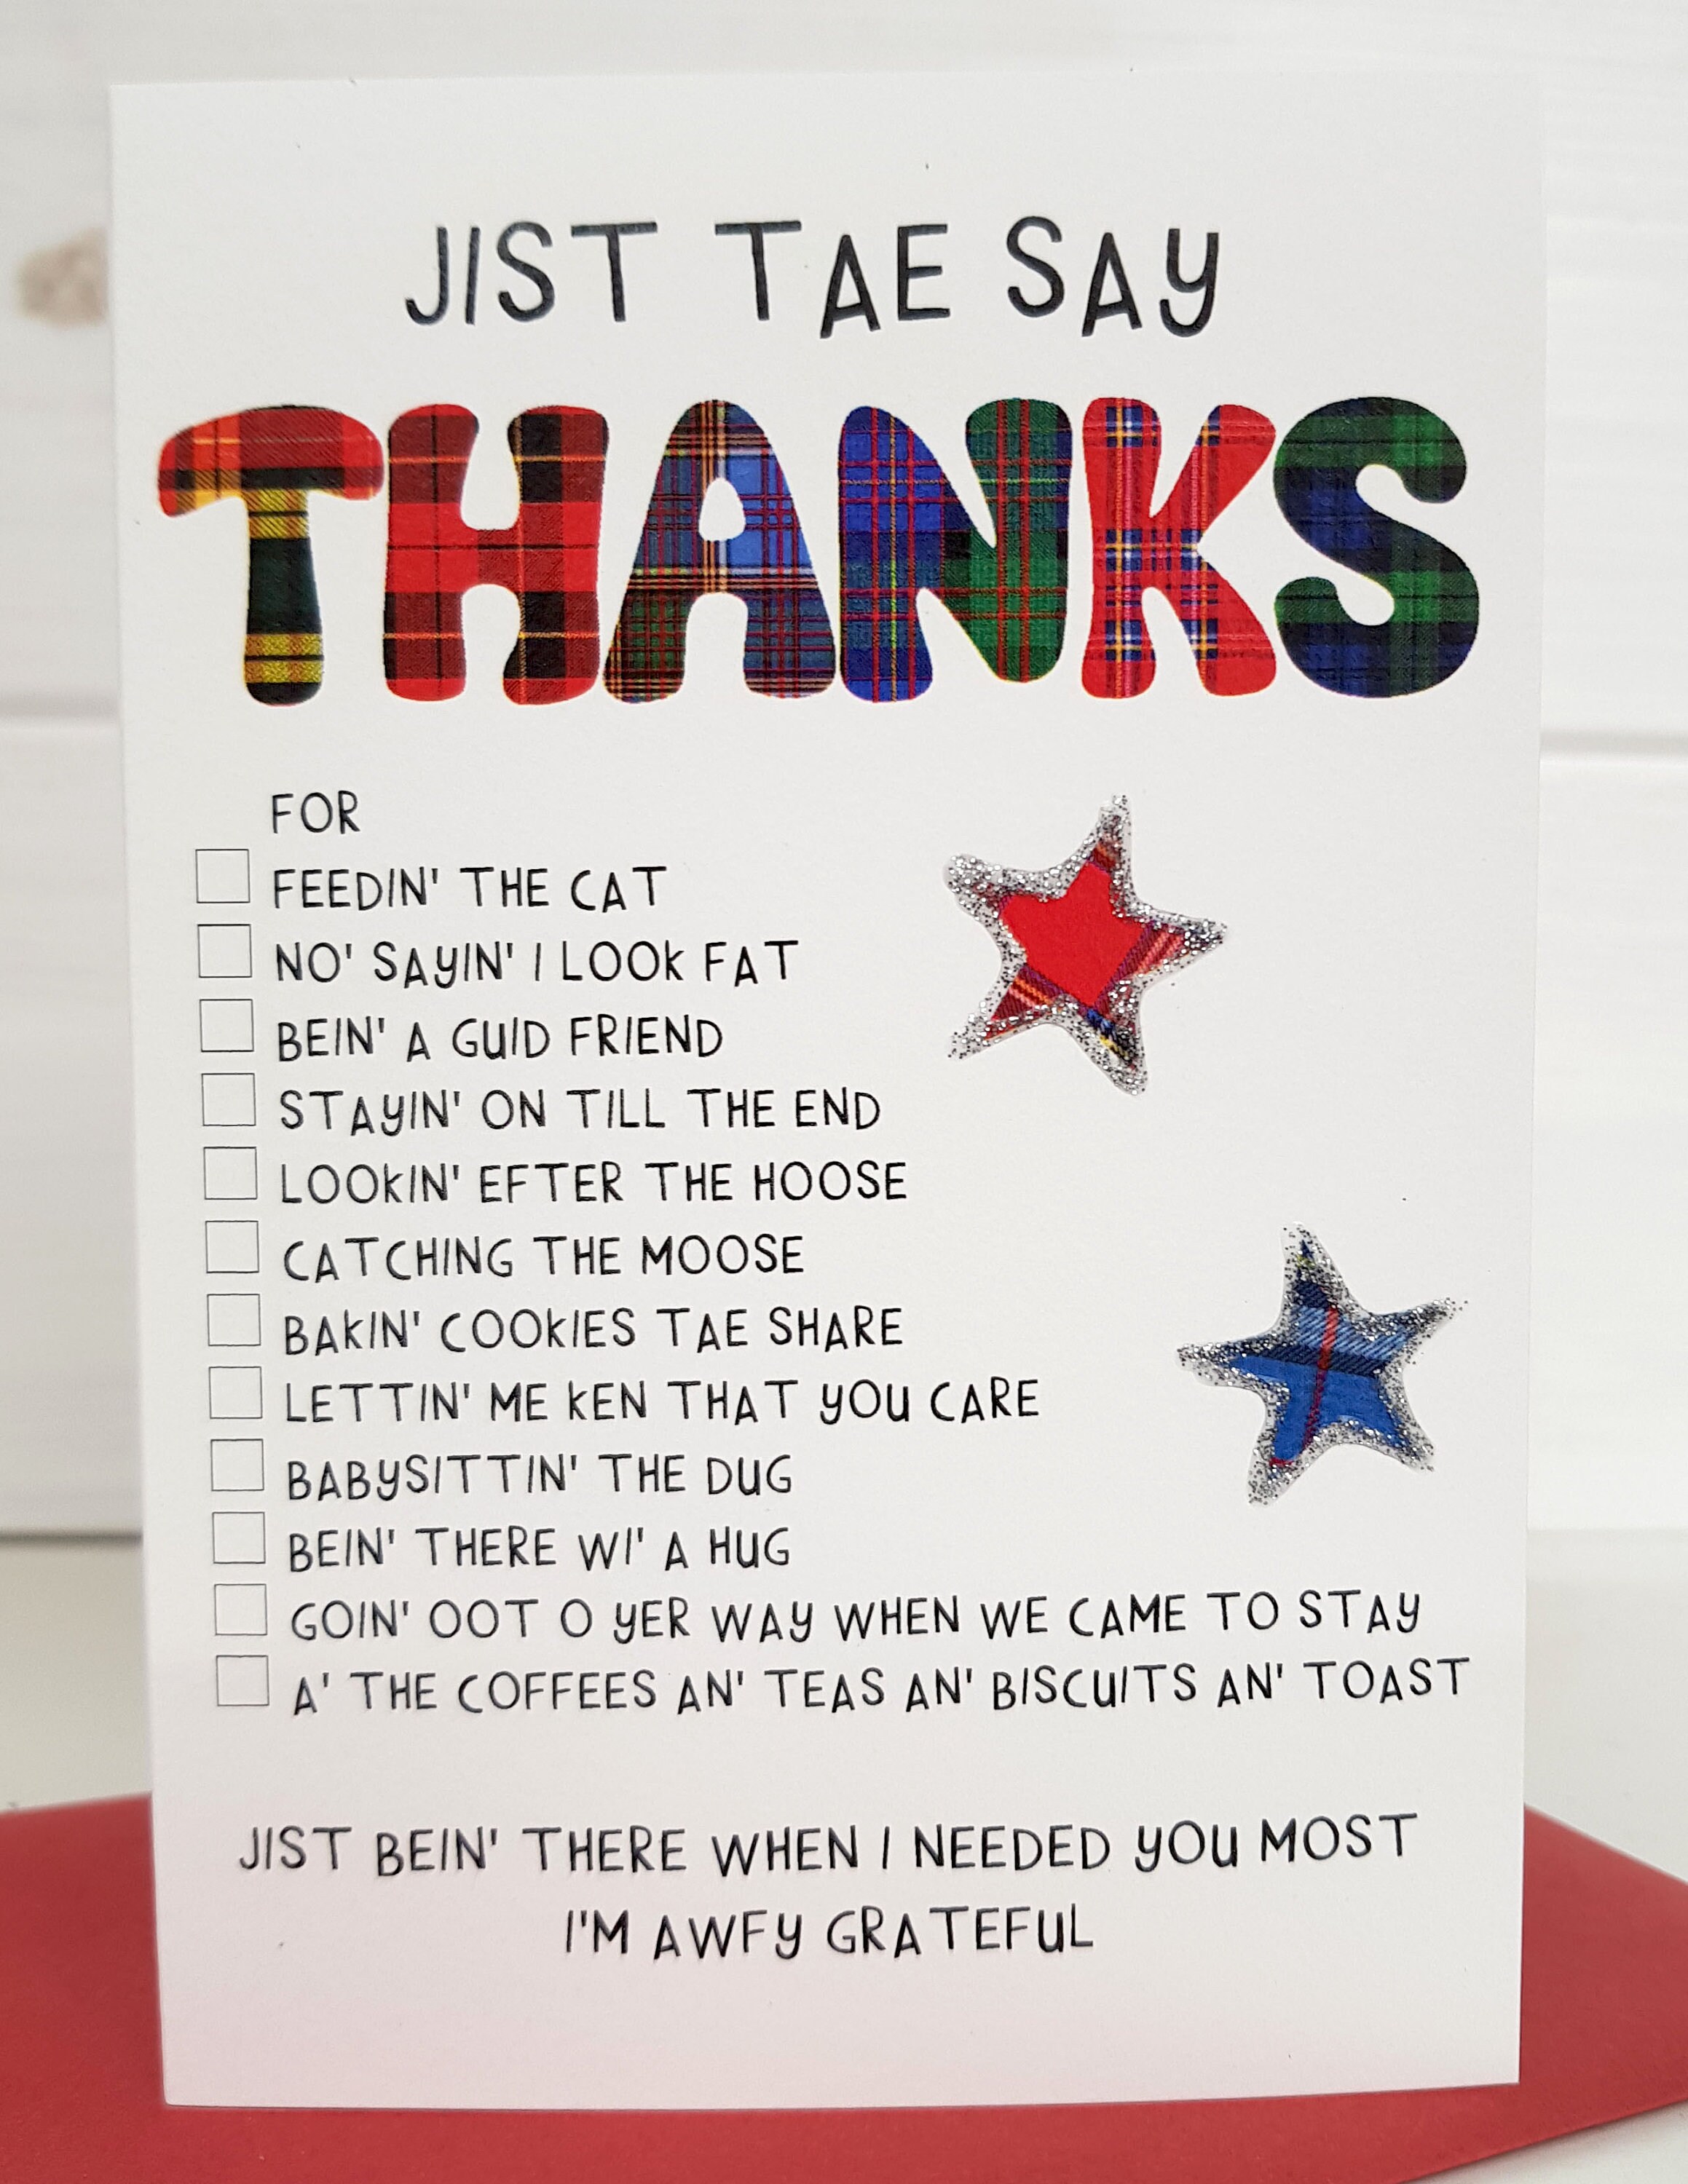 JIST TAE SAY
THANKS
FOR
FEEDIN' THE CAT
NO' SAYIN' I LOOK FAT
BEIN' A GUID FRIEND
STAYIN' ON TILL THE END
LOOKIN' EFTER THE HOOSE
CATCHING THE MOOSE
BAKIN' COOKIES TAE SHARE
LETTIN' ME KEN THAT YOU CARE
BABYSITTIN' THE DUG
BEIN' THERE WI' A HUG
GOIN' OOT O YER WAY WHEN WE CAME TO STAY
A' THE COFFEES AN' TEAS AN' BISCUITS AN' TOAST
JIST BEIN' THERE WHEN I NEEDED YOU MOST
I'M AWFY GRATEFUL